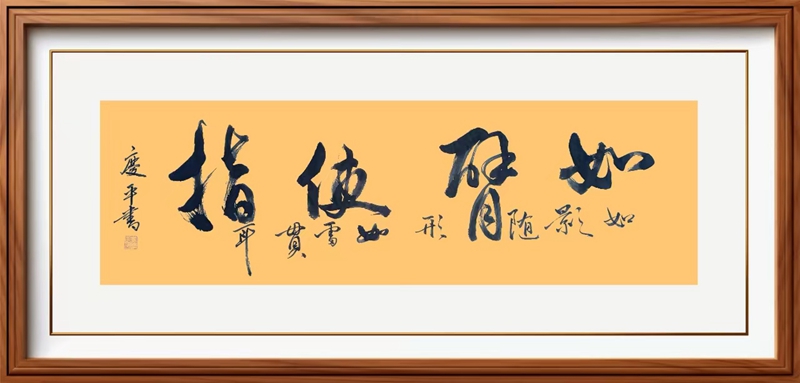 如臂使指
如影随形
如雷贯耳
慶平書